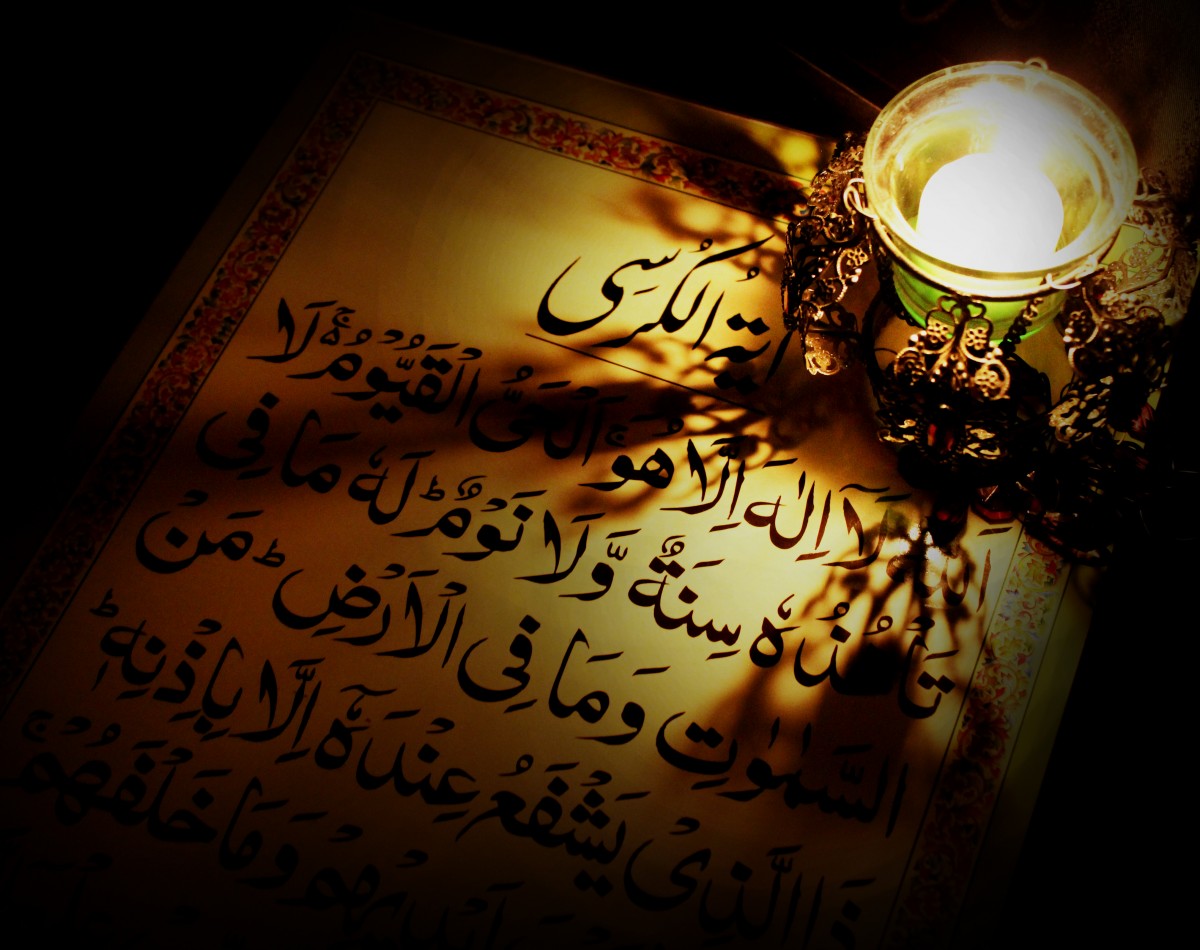 اٰيةُ الكُرسِى
اَللّٰهُ لَآ اِلٰهَ اِلَّا هُوَۚ اَلْحَىُّ الْقَيُّوْمُ۬ۚ لَا
تَاْخُذُهٗ سِنَةٌ وَّلَا نَوْمٌؕ لَهٗ مَا فِى
السَّمٰوٰتِ وَمَا فِى الْاَرْضِؕ مَنْ
ذَا الَّذِىْ يَشْفَعُ عِنْدَهٗۤ اِلَّا بِاِذْنِهٖؕ
اَيْدِيْهِمْ وَمَا خَلْفَهُمْۚ